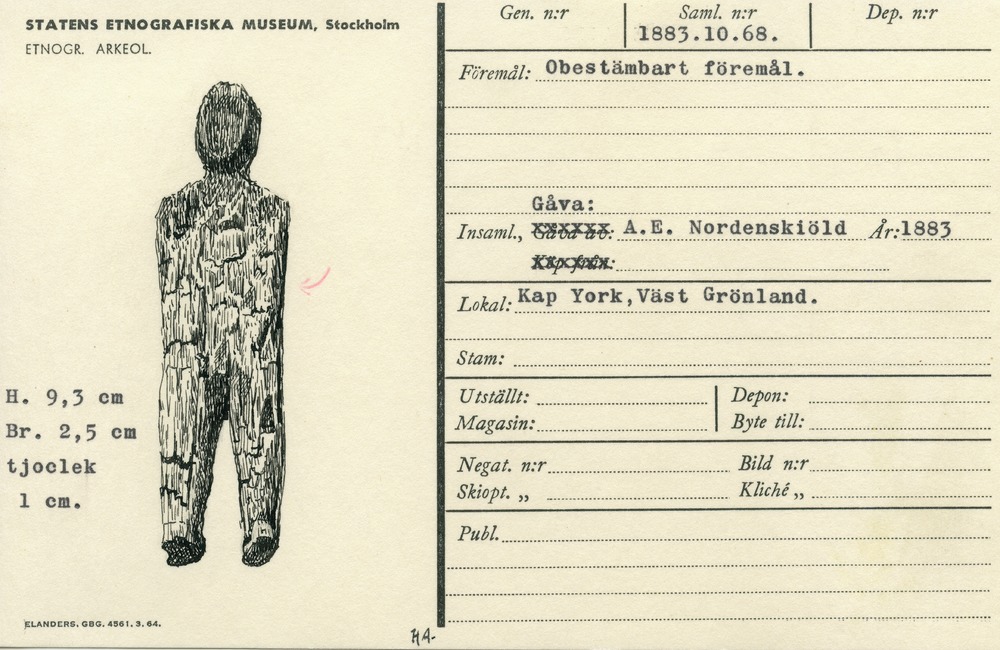 STATENS ETNOGRAFISKA MUSEUM, Stockholm
ETNOGR. ARKEOL.
H. 9,3 cm
Br. 2,5 cm
tjoclek
1 cm.
ELANDERS. GBG. 4561. 3. 64.
HA.
Gen. n:r Saml. n:r Dep. n:r
1883.10.68.
Föremål: Obestämbart föremål.
Gåva:
Insaml., Gåva av: A.E. Nordenskiöld År: 1883
Köp från:
Lokal: Kap York, Väst Grönland.
Stam:
Utställt: Depon:
Magasin: Byte till:
Negat. n:r Bild n:r
Skiopt. „ Kliché „
Publ.